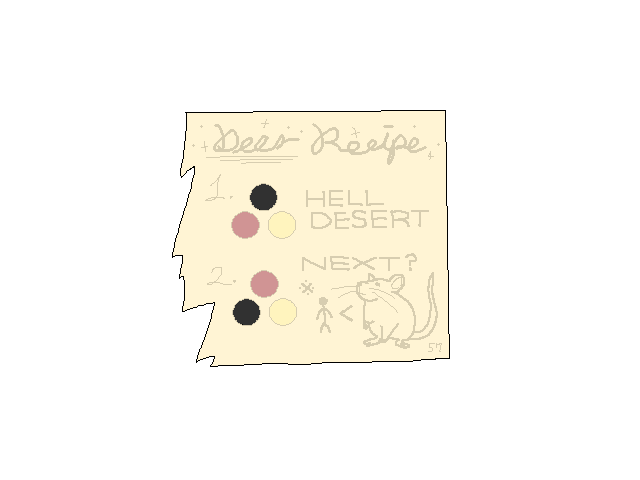 Dear Recipe
1.
HELL
DESERT
NEXT?
2.
<
57